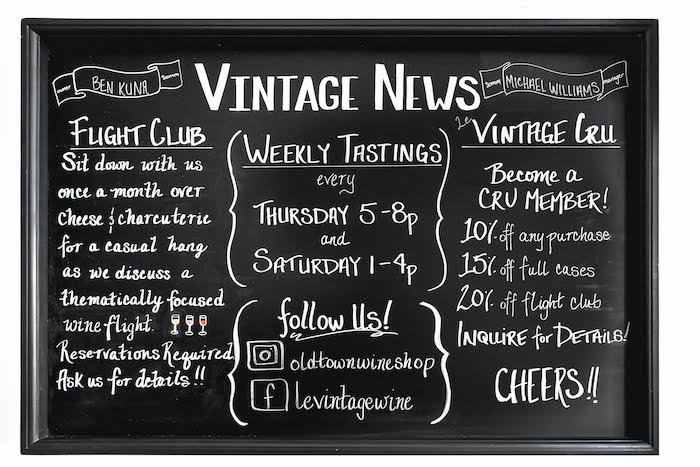 owner BEN KUNA somm
VINTAGE NEWS
somm MICHAEL WILLIAMS manager
FLIGHT CLUB
Sit down with us
once a month over
Cheese & charcuterie
for a casual hang
as we discuss a
thematically focused
wine flight.
Reservations Required
Ask us for details!!
WEEKLY TASTINGS
every
THURSDAY 5-8p
and
SATURDAY 1-4p
follow Us!
oldtownwineshop
f levintagewine
Le VINTAGE CRU
Become a
CRU MEMBER!
10% off any purchase
15% off full cases
20% off flight club
INQUIRE for DETAILS!
CHEERS!!